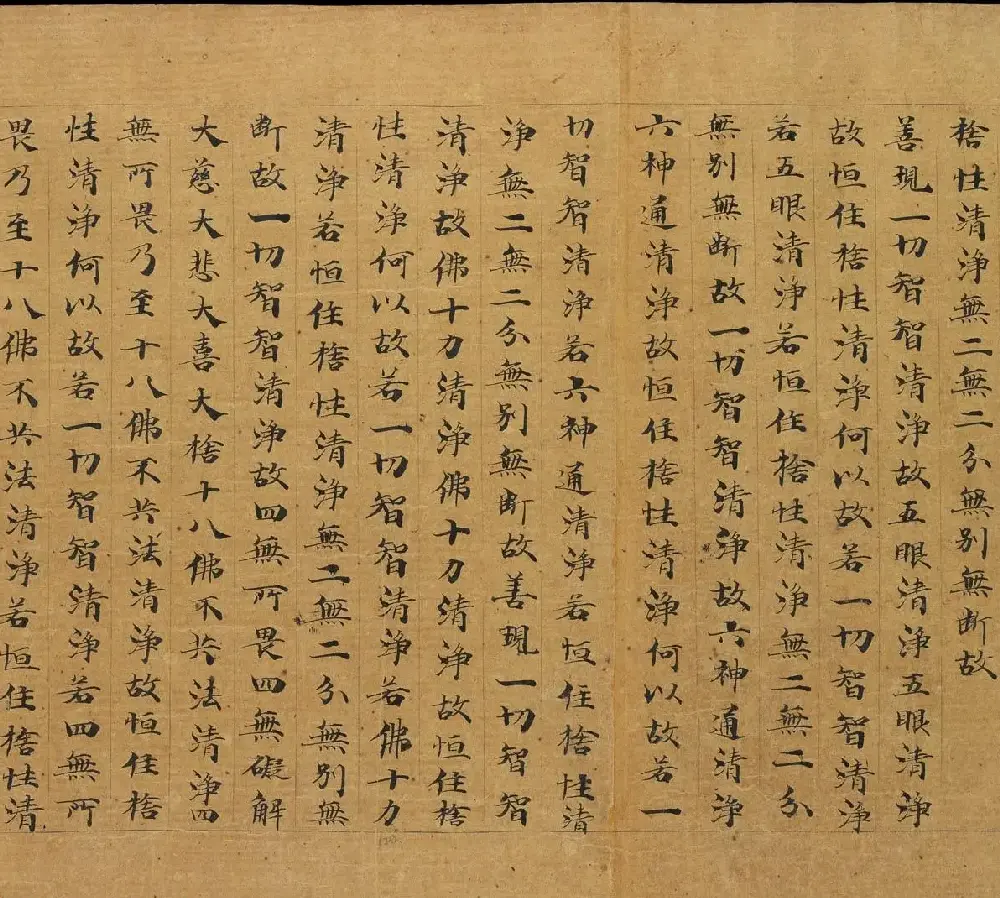 捨性清浄無二無二分無別無断故
善現一切智智清浄故五眼清浄五眼清浄
故恒住捨性清浄何以故若一切智智清浄
若五眼清浄若恒住捨性清浄無二無二分
無別無断故一切智智清浄故六神通清浄
六神通清浄故恒住捨性清浄何以故若一
切智智清浄若六神通清浄若恒住捨性清
浄無二無二分無別無断故善現一切智智
清浄故佛十力清浄佛十力清浄故恒住捨
性清浄何以故若一切智智清浄若佛十力
清浄若恒住捨性清浄無二無二分無別無
断故一切智智清浄故四無所畏四無礙解
大慈大悲大喜大捨十八佛不共法清浄四
無所畏乃至十八佛不共法清浄故恒住捨
性清浄何以故若一切智智清浄若四無所
畏乃至十八佛不共法清浄若恒住捨性清